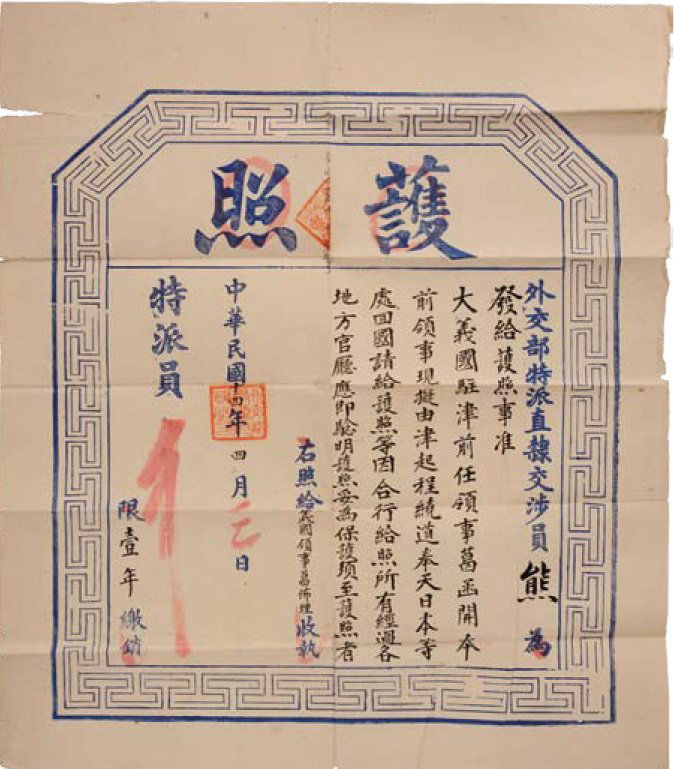 護照
外交部特派直隸交涉員熊為
發給護照事准
大義國駐津前任領事葛函開本
前領事現擬由津起程繞道奉天日本等
處回國請給護照等因合行給照所有經過各
地方官廳應即驗明護照妥為保護須至護照者
右照給義國領事葛佛理收執
中華民國十四年四月 日
特派員
限壹年繳銷